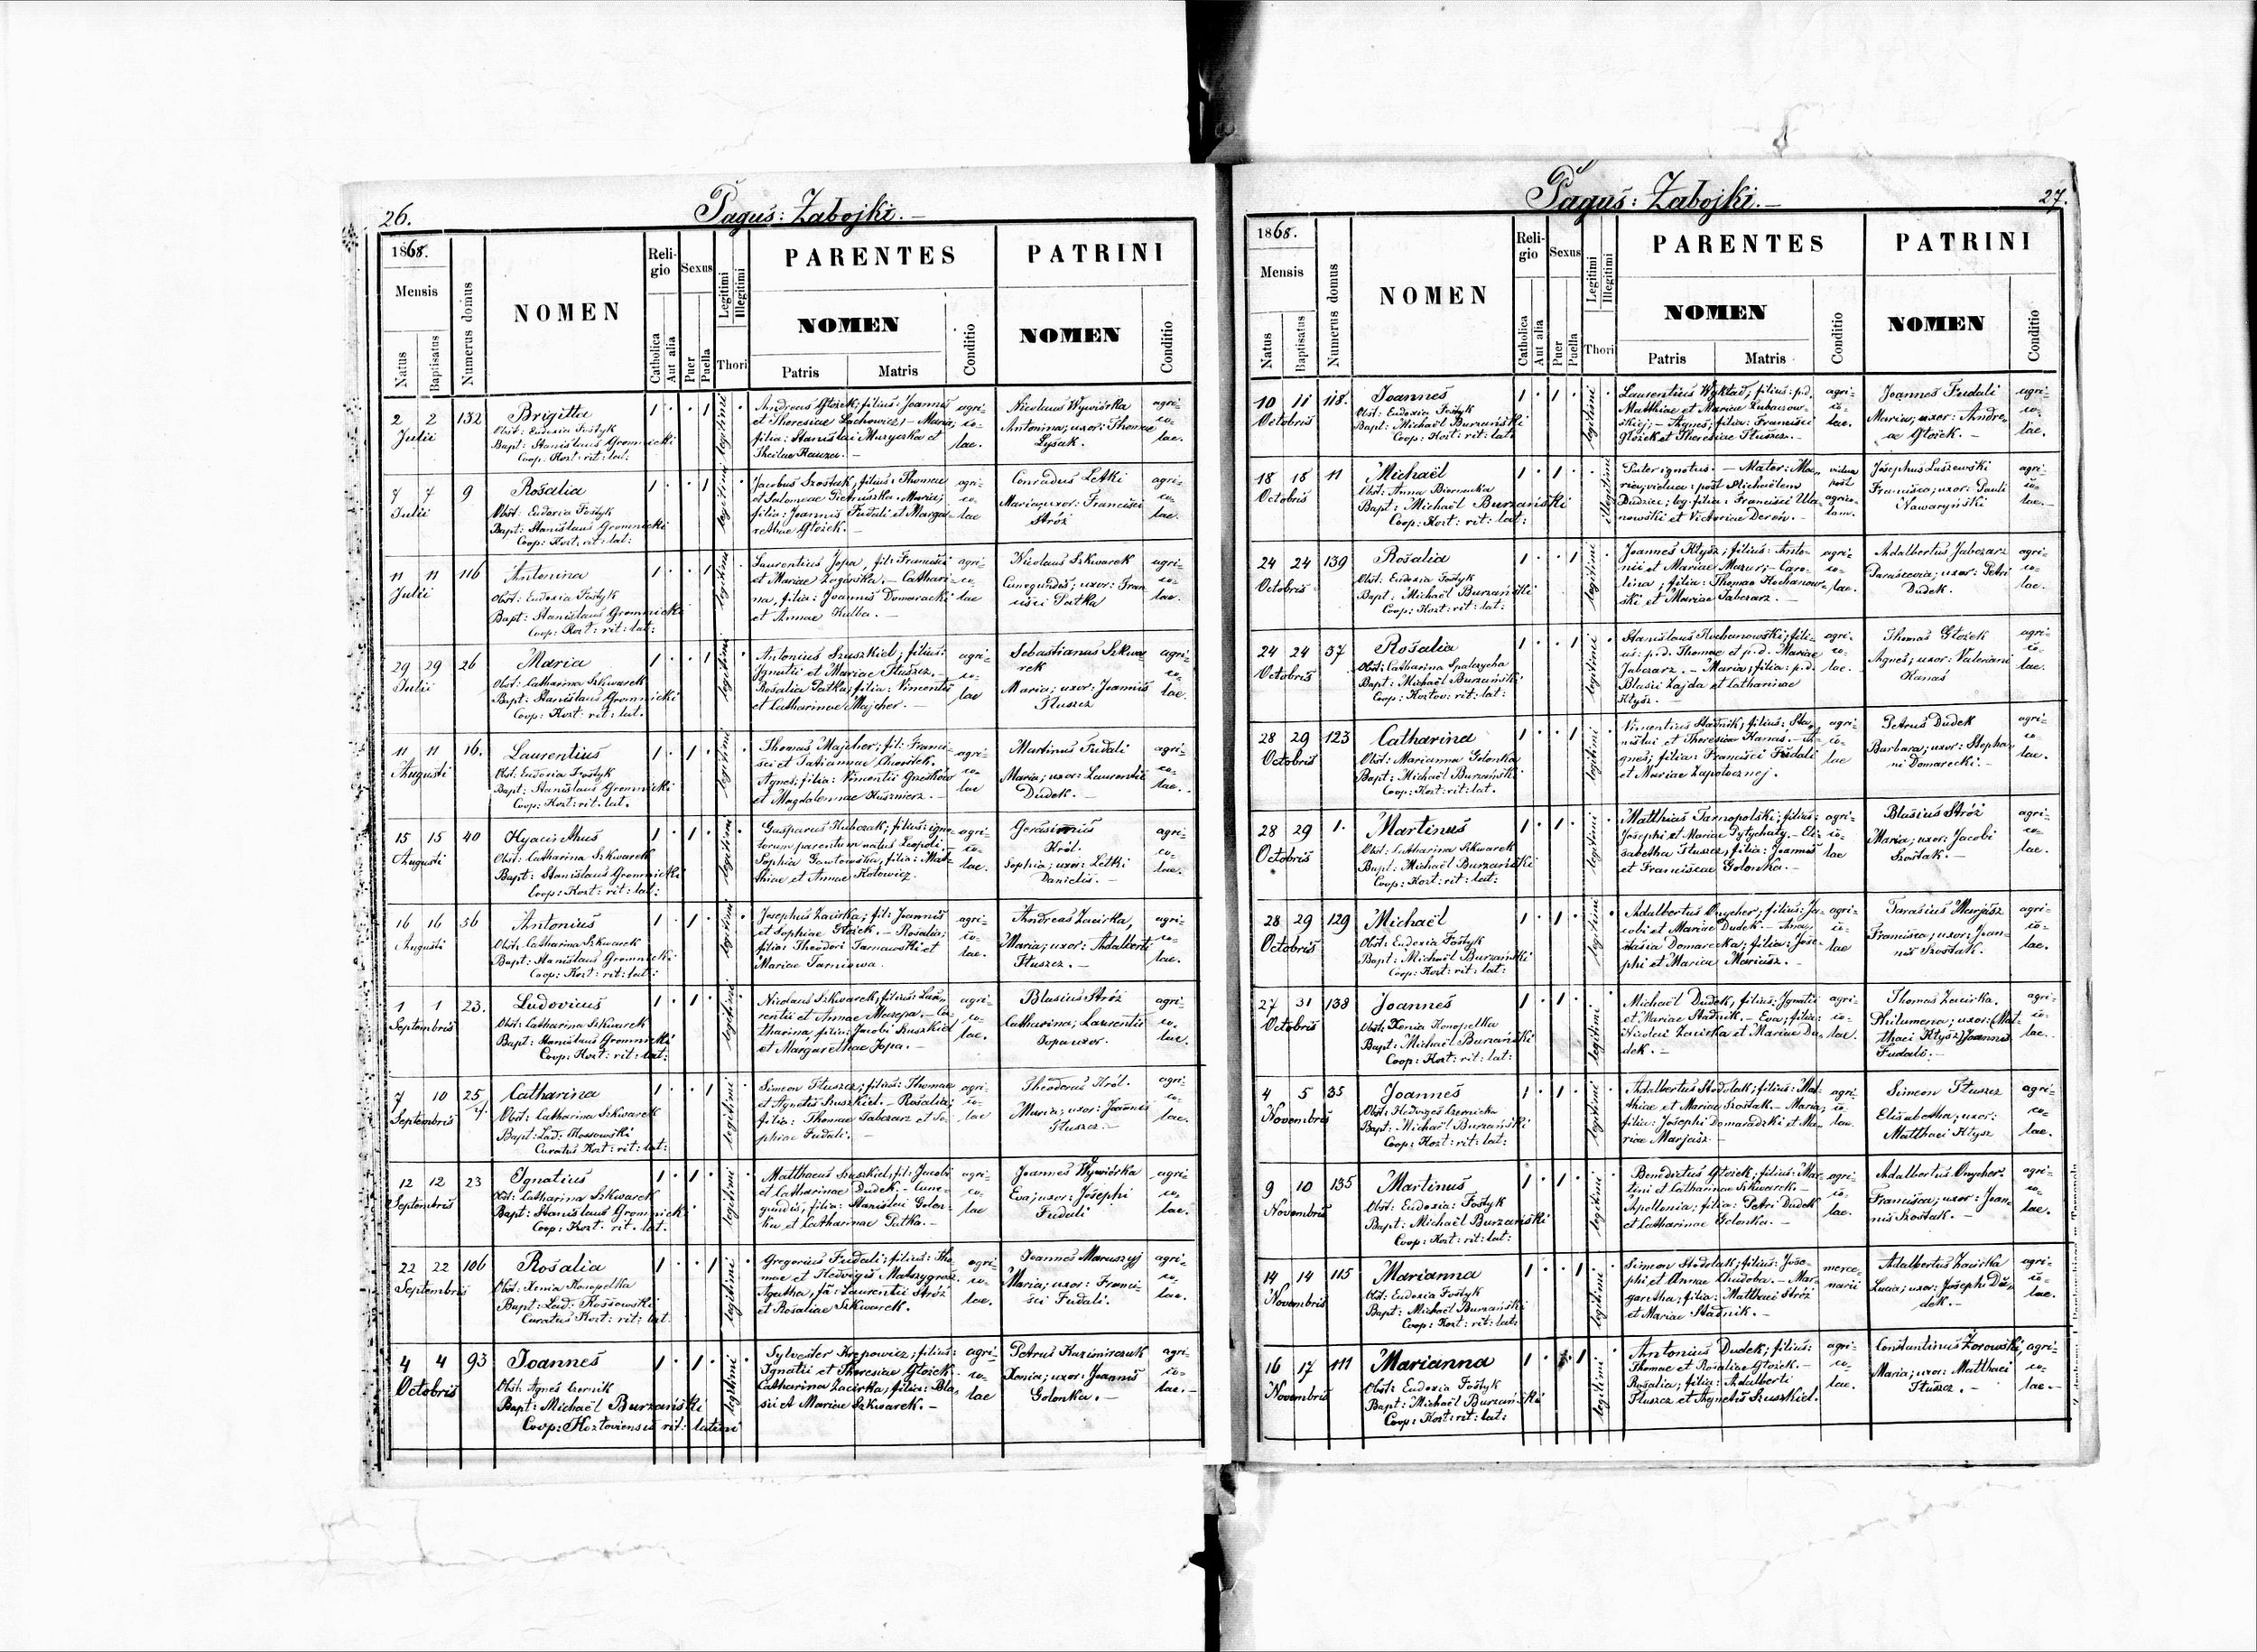 26.
Pagus: Zabojki. —
1868.
Mensis
Natus
Baptisatus
Numerus domus
NOMEN
Religio
Catholica
Aut alia
Sexus
Puer
Puella
Legitimi
Illegitimi
Thori
PARENTES
NOMEN
Patris
Matris
Conditio
PATRINI
NOMEN
Conditio
2 2 132
Julii
Brigitta
Obst: Eudoxia Fostyk
Bapt: Stanislaus Gromnicki
Coop. Kozt. rit: lat:
1 · · 1 legitimi ·
Andreas Głożek; filius: Joannis
et Theresiae Lachowicz, – Maria;
filia: Stanislai Muryczka et
Theclae Kauza. –
agri-
co-
lae.
Nicolaus Wywiórka
Antonina; uxor: Thomae
Łysak.
agri-
co-
lae.
7 7 9
Julii
Rosalia
Obst: Eudoxia Fostyk
Bapt: Stanislaus Gromnicki
Coop: Kozt: rit: lat:
1 · · 1 legitimi ·
Jacobus Szostak; filius: Thomae
et Salomeae Pietruszka. Maria;
filia: Joannis Fudali et Marga-
rethae Głożek. –
agri-
co-
lae
Conradus Letki
Maria; uxor: Francisci
Stróż
agri-
co-
lae.
11 11 116
Julii
Antonina
Obst: Eudoxia Fostyk
Bapt: Stanislaus Gromnicki
Coop: Kozt: rit: lat:
1 · · 1 legitimi ·
Laurentius Jopa, fil: Francisci
et Mariae Zagórska. – Cathari-
na, filia: Joannis Domaracki
et Annae Kulba. –
agri-
co-
lae
Nicolaus Szkwarek
Cunegundis; uxor: Fran
cisci Patka
agri-
co-
lae.
29 29 26
Julii
Maria
Obst: Catharina Szkwarek
Bapt: Stanislaus Gromnicki
Coop: Kozt: rit: lat.
1 · · 1 legitimi ·
Antonius Szuszkiel; filius:
Ignatii et Mariae Tłuszcz. –
Rosalia Patka; filia: Vincentii
et Catharinae Majcher. –
agri-
co-
lae
Sebastianus Szkwa-
rek
Maria; uxor: Joannis
Tłuszcz
agri-
co-
lae.
11 11 16.
Augusti
Laurentius
Obst: Eudoxia Fostyk
Bapt: Stanislaus Gromnicki
Coop: Kozt: rit: lat.
1 · 1 · legitimi ·
Thomas Majcher; fil: Franci-
sci et Tatiannae
Agnes; filia: Vincentii Grześków
et Magdalennae Kuśnierz. –
agri-
co-
lae
Martinus Fudali
Maria; uxor: Laurentii
Dudek. –
agri-
co-
lae.
15 15 40
Augusti
Hyacinthus
Obst: Catharina Szkwarek
Bapt: Stanislaus Gromnicki
Coop: Kozt: rit: lat:
1 · 1 · legitimi ·
Gasparus Kubczak; filius: igno-
torum parentum natus Leopoli. –
Sophia filia: Mat-
thiae et Annae Kotowicz.
agri-
co-
lae.
Gerasimus
Król.
Sophia; uxor: Letki
Danielis. –
agri-
co-
lae.
16 16 56
Augusti
Antonius
Obst: Catharina Szkwarek
Bapt: Stanislaus Gromnicki
Coop: Kozt: rit: lat:
1 · 1 · legitimi ·
Josephus Zacirka; fil: Joannis
et Sophiae Głożek. – Rosalia;
filia: Theodori Tarnawski et
Mariae
agri-
co-
lae.
Andreas Zacirka,
Maria; uxor: Adalberti
Tłuszcz. –
agri-
co-
lae.
1 1 23.
Septembris
Ludovicus
Obst: Catharina Szkwarek
Bapt: Stanislaus Gromnicki
Coop: Kozt: rit: lat:
1 · 1 · legitimi ·
Nicolaus Szkwarek; filius: Lau-
rentii et Annae Mazepa. – Ca-
tharina; filia: Jacobi Suszkiel
et Margarethae Jopa. –
agri-
co-
lae.
Blasius Stróż
Catharina; Laurentii
Jopa uxor.
agri-
co-
lae.
7 10 25
Septembris
Catharina
Obst: Catharina Szkwarek
Bapt: Lud. Kossowski
Curatus Kozt: rit: lat:
1 · · 1 legitimi ·
Simeon Tłuszcz; filius: Thomae
et Agnetis Suszkiel. – Rosalia;
filia: Thomae Tabczarz et So-
phiae Fudali. –
agri-
co-
lae
Theodorus Król.
Maria; uxor: Joannis
Tłuszcz. –
agri-
co-
lae.
12 12 23
Septembris
Ignatius
Obst: Catharina Szkwarek
Bapt: Stanislaus Gromnicki
Coop: Kozt. rit. lat:
1 · 1 · legitimi ·
Matthaeus Szuszkiel, fil: Jacobi
et Catharinae Dudek. – Cune-
gundis; filia: Stanislai Golon-
ka et Catharinae Patka. –
agri-
co-
lae
Joannes Wywiórka
Eva; uxor: Josephi
Fudali
agri-
co-
lae.
22 22 106
Septembris
Rosalia
Obst: Xenia Konopelka
Bapt: Lud: Kossowski
Curatus Kozt: rit: lat.
1 · · 1 legitimi ·
Gregorius Fudali; filius: Tho-
mae et Hedvigis
Agatha, fa: Laurentii Stróż
et Rosaliae Szkwarek.
agri-
co-
lae.
Joannes Maruszyj
Maria; uxor: Franci-
sci Fudali.
agri-
co-
lae.
4 4 93
Octobris
Joannes
Obst: Agnes Czernik
Bapt: Michaël Burzański
Coop: Koztoviensis rit: latini
1 · 1 · legitimi ·
Sylvester Krepowicz; filius:
Ignatii et Theresiae Głożek. –
Catharina Zacirka; filia: Bla-
sii et Mariae Szkwarek. –
agri-
co-
lae
Petrus Kazimirczuk
Xenia; uxor: Joannis
Golonka. –
agri-
co-
lae. –
Pagus: Zabojki. —
27.
1868.
Mensis
Natus
Baptisatus
Numerus domus
NOMEN
Religio
Catholica
Aut alia
Sexus
Puer
Puella
Legitimi
Illegitimi
Thori
PARENTES
NOMEN
Patris
Matris
Conditio
PATRINI
NOMEN
Conditio
10 11 118.
Octobris
Joannes
Obst: Eudoxia Fostyk
Bapt: Michaël Burzański
Coop: Kozt: rit: lat:
1 · 1 · legitimi ·
Laurentius Wykład; filius: p.d.
Matthiae et Mariae Lubaczow-
skiej; – Agnes; filia: Francisci
Głożek et Theresiae Tłuszcz. –
agri-
co-
lae.
Joannes Fudali
Maria; uxor: Andre-
ae Głożek. –
agri-
co-
lae.
18 18 11
Octobris
Michaël
Obst: Anna Biernacka
Bapt: Michaël Burzański
Coop: Kozt: rit: lat:
1 · 1 · illegitimi
Pater ignotus. – Mater: Ma-
ria; vidua post Michaëlem
Dudziec; leg: filia: Francisci Ula-
nowski et Victoriae Deroń. –
vidua
post
agrico-
lam.
Josephus Luszewski
Francisca; uxor: Pauli
Nawaryński
agri-
co-
lae. –
24 24 139
Octobris
Rosalia
Obst: Eudoxia Fostyk
Bapt: Michaël Burzański
Coop: Kozt: rit: lat:
1 · · 1 legitimi ·
Joannes Kłysz; filius: Anto-
nii et Mariae Mazur; – Caro-
lina; filia: Thomae Kochanow-
ski et Mariae Tabczarz. –
agri-
co-
lae.
Adalbertus Jabczarz
Parascevia; uxor: Petri
Dudek.
agri-
co-
lae.
24 24 37
Octobris
Rosalia
Obst: Catharina Spalezycha
Bapt: Michaël Burzański
Coop: Koztov: rit: lat:
1 · · 1 legitimi ·
Stanislaus Kochanowski; fili-
us: p.d. Thomae et p.d. Mariae
Jabczarz. – Maria; filia: p.d.
Blasii Zajda et Catharinae
Kłysz. –
agri-
co-
lae.
Thomas Głożek
Agnes; uxor: Valeriani
Kanas
agri-
co-
lae.
28 29 123
Octobris
Catharina
Obst: Marianna Golonka
Bapt: Michaël Burzański
Coop: Kozt: rit: lat.
1 · · 1 legitimi ·
Vincentius Stadnik; filius: Sta-
nislai et Theresiae Kanas. – A-
gnes; filia: Francisci Fudali
et Mariae Zapotocznej.
agri-
co-
lae
Petrus Dudek
Barbara; uxor: Stepha-
ni Domarecki. –
agri-
co-
lae.
28 29 1.
Octobris
Martinus
Obst: Catharina Szkwarek
Bapt: Michaël Burzański
Coop: Kozt: rit: lat:
1 · 1 · legitimi ·
Matthias Tarnopolski; filius:
Josephi et Mariae Pytychaty. – Eli-
sabetha Tłuszcz, filia: Joannis
et Franciscae Golonka. –
agri-
co-
lae
Blasius Stróż
Maria; uxor: Jacobi
Szostak. –
agri-
co-
lae.
28 29 129
Octobris
Michaël
Obst: Eudoxia Fostyk
Bapt: Michaël Burzański
Coop: Kozt: rit: lat:
1 · 1 · legitimi ·
Adalbertus Onycher; filius: Ja-
cobi et Mariae Dudek. – Ana-
stasia Domarecka; filia: Jose-
phi et Mariae Mariasz. –
agri-
co-
lae
Tarasius Marjasz
Francisca; uxor: Joan-
nis Szostak. –
agri-
co-
lae.
27 31 138
Octobris
Joannes
Obst: Xenia Konopelka
Bapt: Michaël Burzański
Coop: Kozt: rit: lat:
1 · 1 · legitimi ·
Michaël Dudek, filius: Ignatii
et Mariae Stadnik. – Eva; filia:
Nicolai Zacirka et Mariae Du-
dek. –
agri-
co-
lae.
Thomas Zacirka.
Philumena; uxor: (Mat-
thaei Kłysz) Joannis
Fudali. –
agri-
co-
lae.
4 5 35
Novembris
Joannes
Obst: Hedviges Czernicka
Bapt: Michaël Burzański
Coop: Kozt: rit: lat:
1 · 1 · legitimi ·
Adalbertus Stodolak; filius: Mat-
thiae et Mariae Szostak. – Maria;
filia: Josephi Domaradzki et Ma-
riae Marjasz –
agri-
co-
lae.
Simeon Tłuszcz
Elisabetha; uxor:
Matthaei Kłysz
agri-
co-
lae.
9 10 135
Novembris
Martinus
Obst: Eudoxia: Fostyk
Bapt: Michaël Burzański
Coop: Kozt: rit: lat:
1 · 1 · legitimi ·
Benedictus Głożek; filius: Mar-
tini et Catharinae Szkwarek. –
Apollonia; filia: Petri Dudek
et Catharinae Golonka. –
agri-
co-
lae.
Adalbertus Onycher
Francisca; uxor: Joan-
nis Szostak. –
agri-
co-
lae.
14 14 115
Novembris
Marianna
Obst: Eudoxia Fostyk
Bapt: Michaël Burzański
Coop: Kozt: rit: lat:
1 · · 1 legitimi ·
Simeon Stodolak; filius: Jose-
phi et Annae Chudoba. – Mar-
garetha; filia: Matthaei Stróż
et Mariae Stadnik. –
merce-
narii
Adalbertus Zacirka
Lucia; uxor: Josephi Du-
dek. –
agri-
co-
lae.
16 17 111
Novembris
Marianna
Obst: Eudoxia Fostyk
Bapt: Michaël Burzański
Coop: Kozt: rit: lat:
1 · 1 legitimi ·
Antonius Dudek; filius:
Thomae et Rosaliae Głożek. –
Rosalia; filia: Adalberti
Tłuszcz et Agnetis Szuszkiel.
agri-
co-
lae.
Constantinus Żorowski,
Maria; uxor: Matthaei
Tłuszcz. –
agri-
co-
lae. –